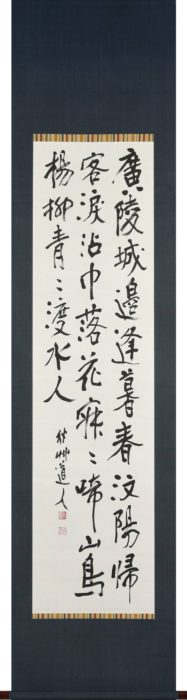 廣陵城邊逢暮春汶陽歸
客淚沾巾落花寂〻啼山鳥
楊柳青〻渡水人
道人